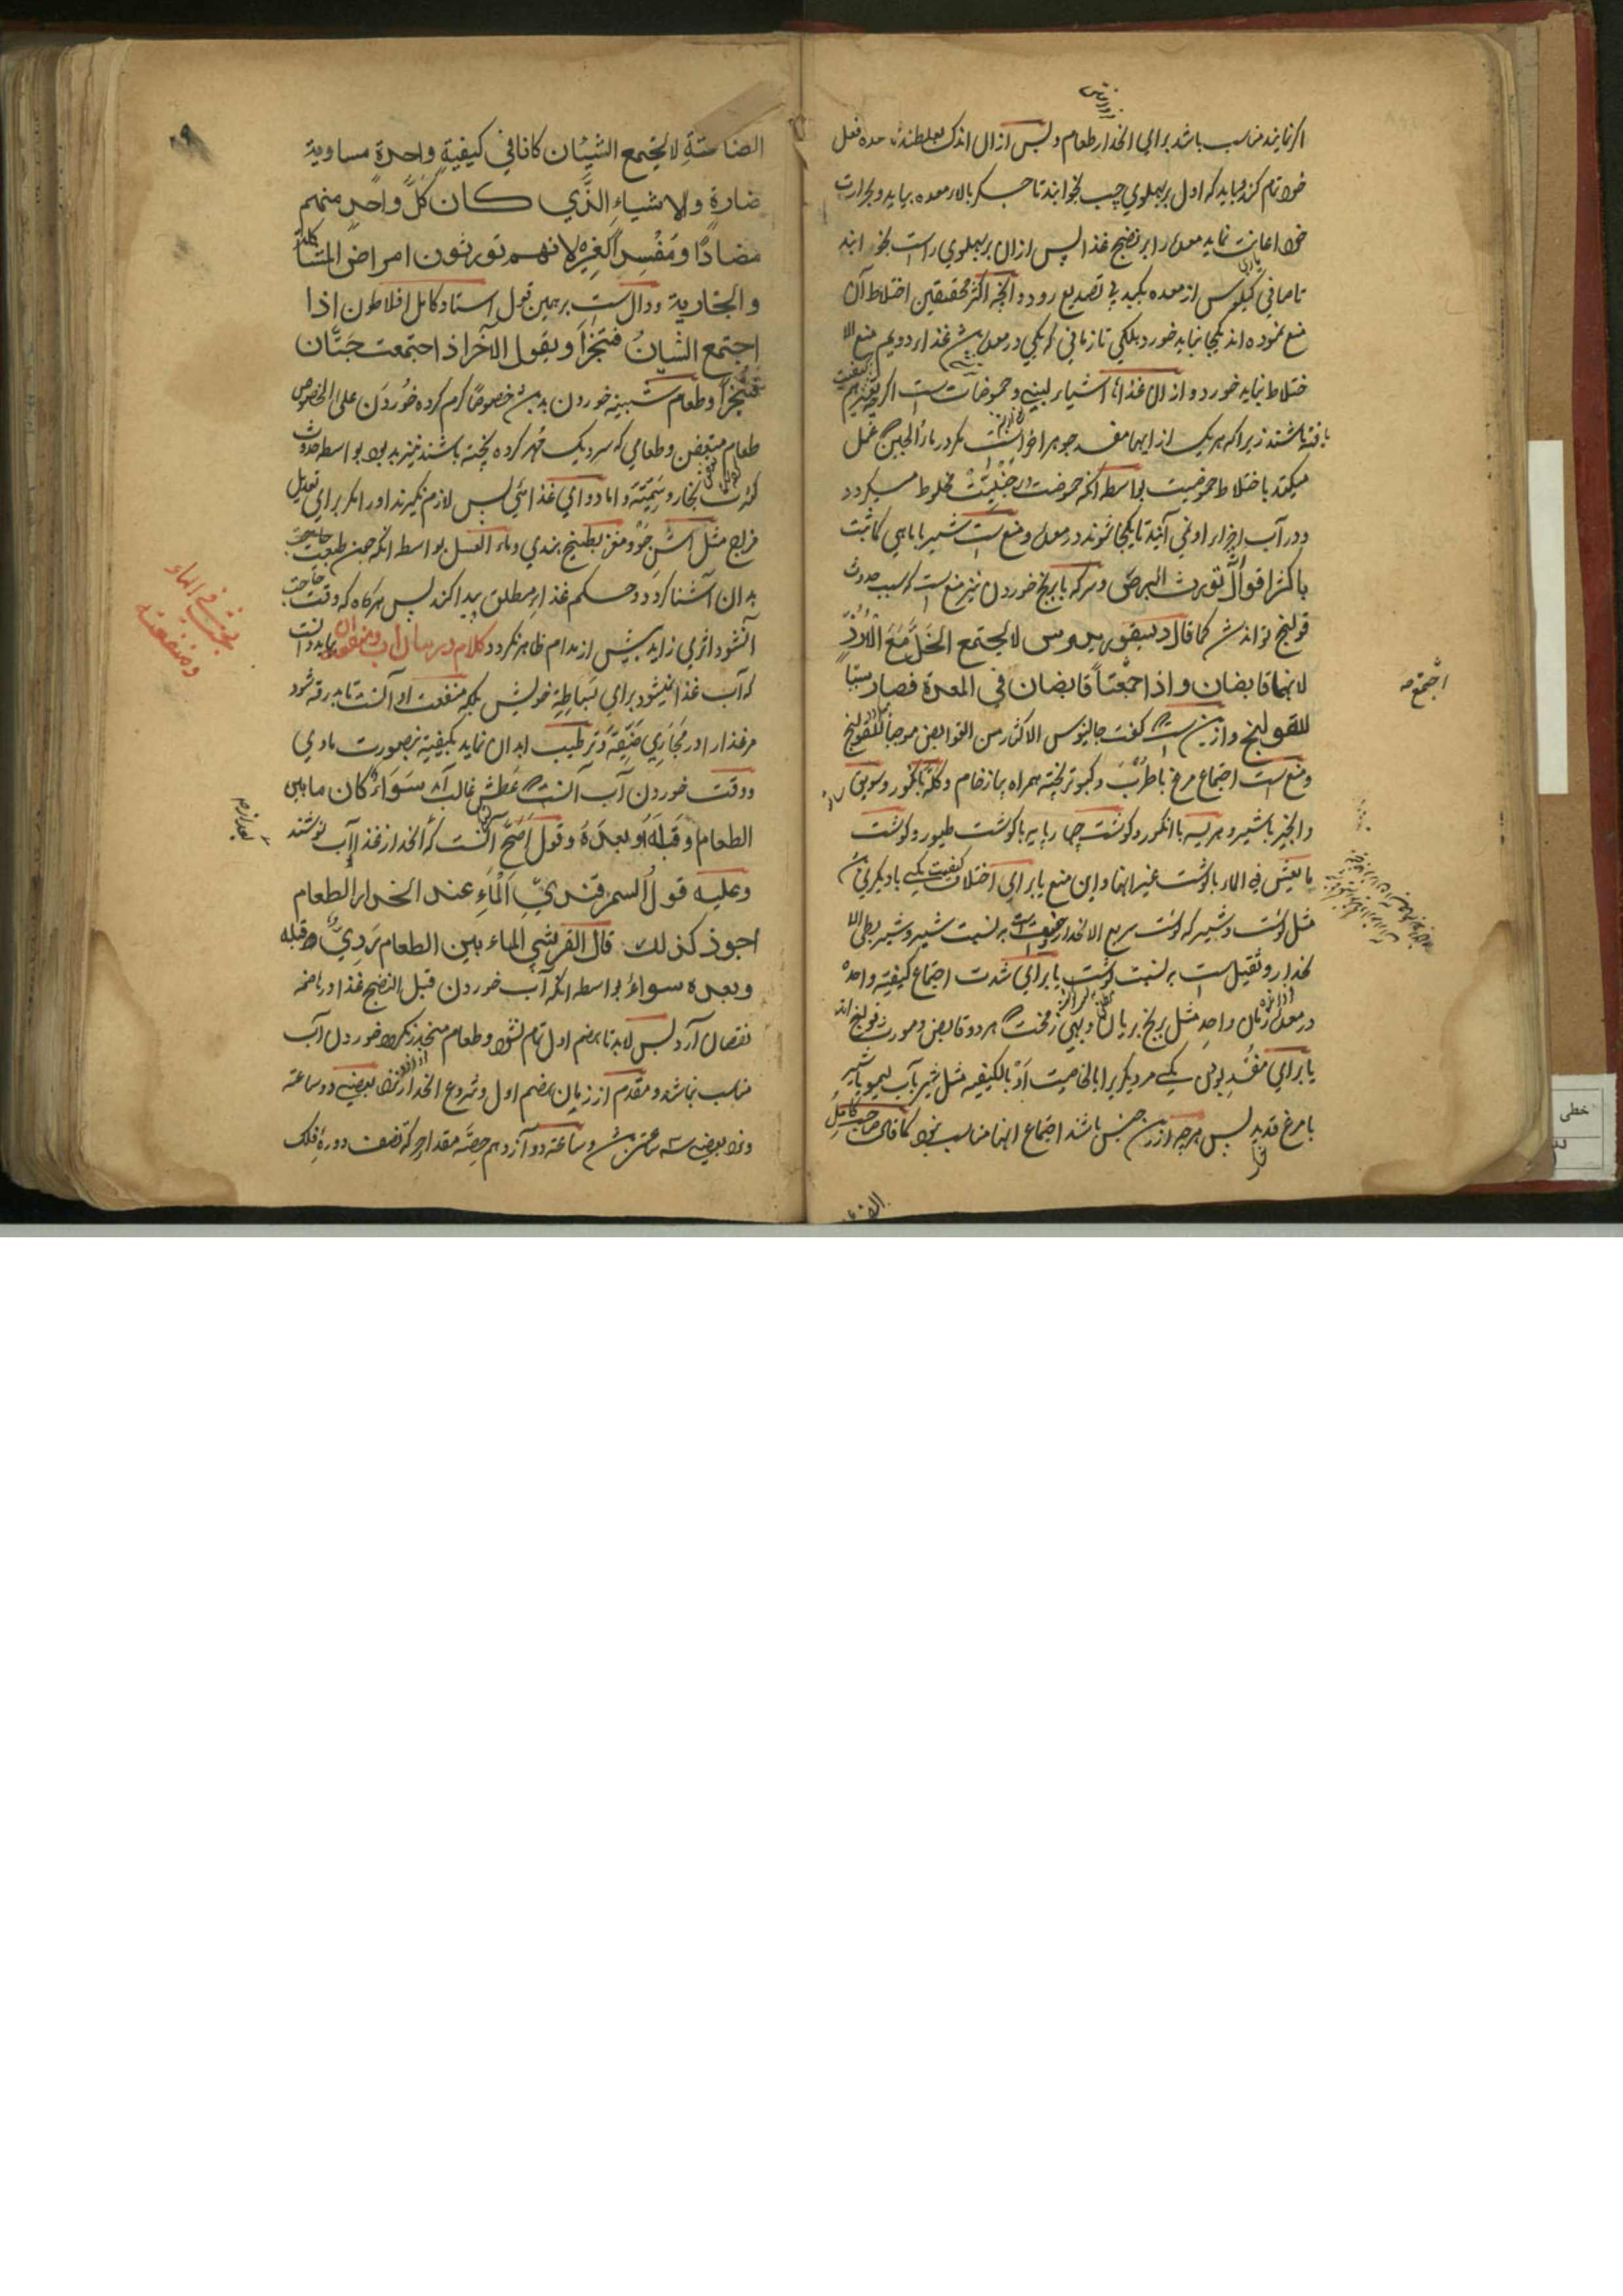 اکر نمایند مناسب باشد برای انحدار طعام و پس ازان اندک بغلطند تا معده فعل
خود تام کند و باید که اول بر پهلوی چپ بخوابند تا جکر بالاء معده بیاید و بحرارت
خود اعانت نماید معده را بر نضج غذا پس ازان بر پهلوی راست بخوابند
تا صافی کیلوس از معده بکبد بی تصدیع رود و آنچه اکثر محققین اختلاط آن
منع نموده اند یکجا نباید خورد بلکه تا زمانی که یکی در معده باشد غذاء دویم منع الا
ختلاط نباید خورد و ازان غذاها اشیاء لبنیه و حموضات است اکرچه
یافته باشند زیرا که هر یک ازاینها مفسد جوهر اخر است مکر در ماء الجبن عمل
میکند با اختلاط حموضیت بواسطه آنکه حموضت در جبنیت مخلوط میکردد
و در آب اجزاء او نمی آیند تا یکجا شوند در معده و منع است شیر با ماهی کما ثبت
باکثر اقوال تورث البرص و سرکه با برنج خوردن نیز منع است که سبب حدوث
قولنج تواند شد کما قال دیسقوریدوس لا یجتمع الخل مع الارز
لانهما قابضان و اذا اجتمعتا قابضان فی المعدة فصار سببا
اجتمع صه
للقولنج و ازین است که گفت جالینوس الاکثار من القوابض موجبا للقولنج
و منع است اجتماع مرغ با طرب و کبوتر پخته همراه پیاز خام و کله با انکور و سویق
و انجیر با شیر و هریسه با انکور و کوشت چهارپایه با کوشت طیور و کوشت
ما یعیش فی الماء با کوشت غیر انها و این منع یا برای اختلاف کیفیت یکی با دیکری
مثل کوشت و شیر که کوشت سریع الانحدار است به نسبت شیر و شیر بطی ال
نحدار و ثقیل است به نسبت کوشت یا برای شدت اجتماع کیفیة واحدة
در معده در زمان واحد مثل برنج بریان و بهی زمخت که هر دو قابض و مورث قولنج اند
یا برای مفسد بودن یکی مر دیکریرا بالخاصیت او بالکیفیه مثل شیر بآب لیمو یا شیر
با مرغ قدید پس هرچه ازین جنس باشد اجتماع انها مناسب نبود کما قال صاحب کامل
الصناعة لا یجتمع الشیئان کانا فی کیفیة واحدة مساویة
ضارة والاشیاء الذی کان کل واحد منهم
مضادا و مفسدا لغیره لانهم تورثون امراض المتشاکلة
والجاریة و دال است برهمین قول استاد کامل افلاطون اذا
اجتمع الشیان فتجزا و بقول الآخر اذ اجتمعت جتان
فتجزا و طعام شبینه خوردن بد است خصوصا کرم کرده خوردن علی الخصوص
طعام متعفن و طعامی که سر دیک مهر کرده پخته باشند نیز بد بود بواسطه حدوث
کثرت بخار و سمیته و اما دوای غذائی پس لازم نکیرند او را مکر برای تعدیل
مزاج مثل آش جو و مغز بطیخ هندی و ماء العسل بواسطه آنکه چون طبیعت
بدان آشنا کردد و حکم غذاء مطلق پیدا کند پس هرکاه که وقت حاجت
آنشود اثری زاید پیش از مدام ظاهر نکردد کلام در بیان آب و منفعت آن باید دانست
بحث فی الماء
و منفعته
که آب غذا نمیشود برای بساطة خویش بلکه منفعت او آنست تا بدرقه شود
مر غذا را در مجاری ضیقة و ترطیب ابدان نماید بکیفیة نه بصورت مادی
و وقت خوردن آب آنست که عطش غالب آید سواء کان مابین
الطعام و قبله او بعده و قول اصح آنست که بعد انحدار غذا آب نوشند
و علیه قول السمرقندی الماء عند انحدار الطعام
اجود کذلک قال القرشی الماء بین الطعام ردی و قبله
و بعده سواء بواسطه آنکه آب خوردن قبل النضج غذا در هاضمه
نقصان آرد پس لابد تا هضم اول تام نشود و طعام منحدر نکردد خوردن آب
مناسب نباشد و مقدم از زمان هضم اول و شروع انحدار نزد بعضی دو ساعته
و نزد بعضی سه ساعت است و ساعته دوآزدهم حصه مقدار چرکه نصف دوره فلک